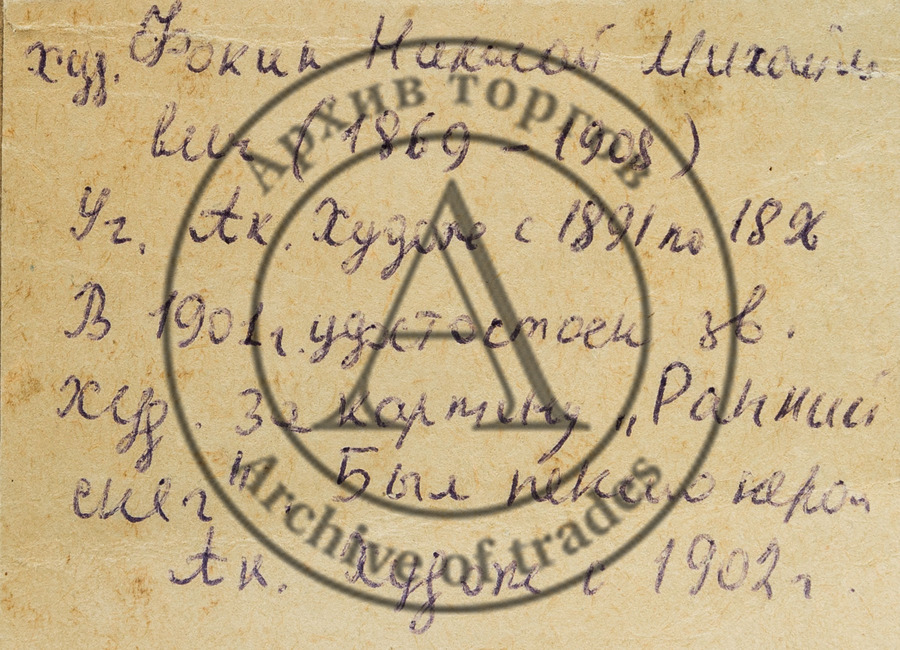 худ. Фокин Николай Михайло
вич (1869 - 1908)
Уч. Ак. Худож с 1891 по 1896
В 1901г. удостоен зв.
худ. за картину „Ранний
снег". Был пенсионером
Ак. Худож с 1902 г.
Архив торгов
Archive of trades